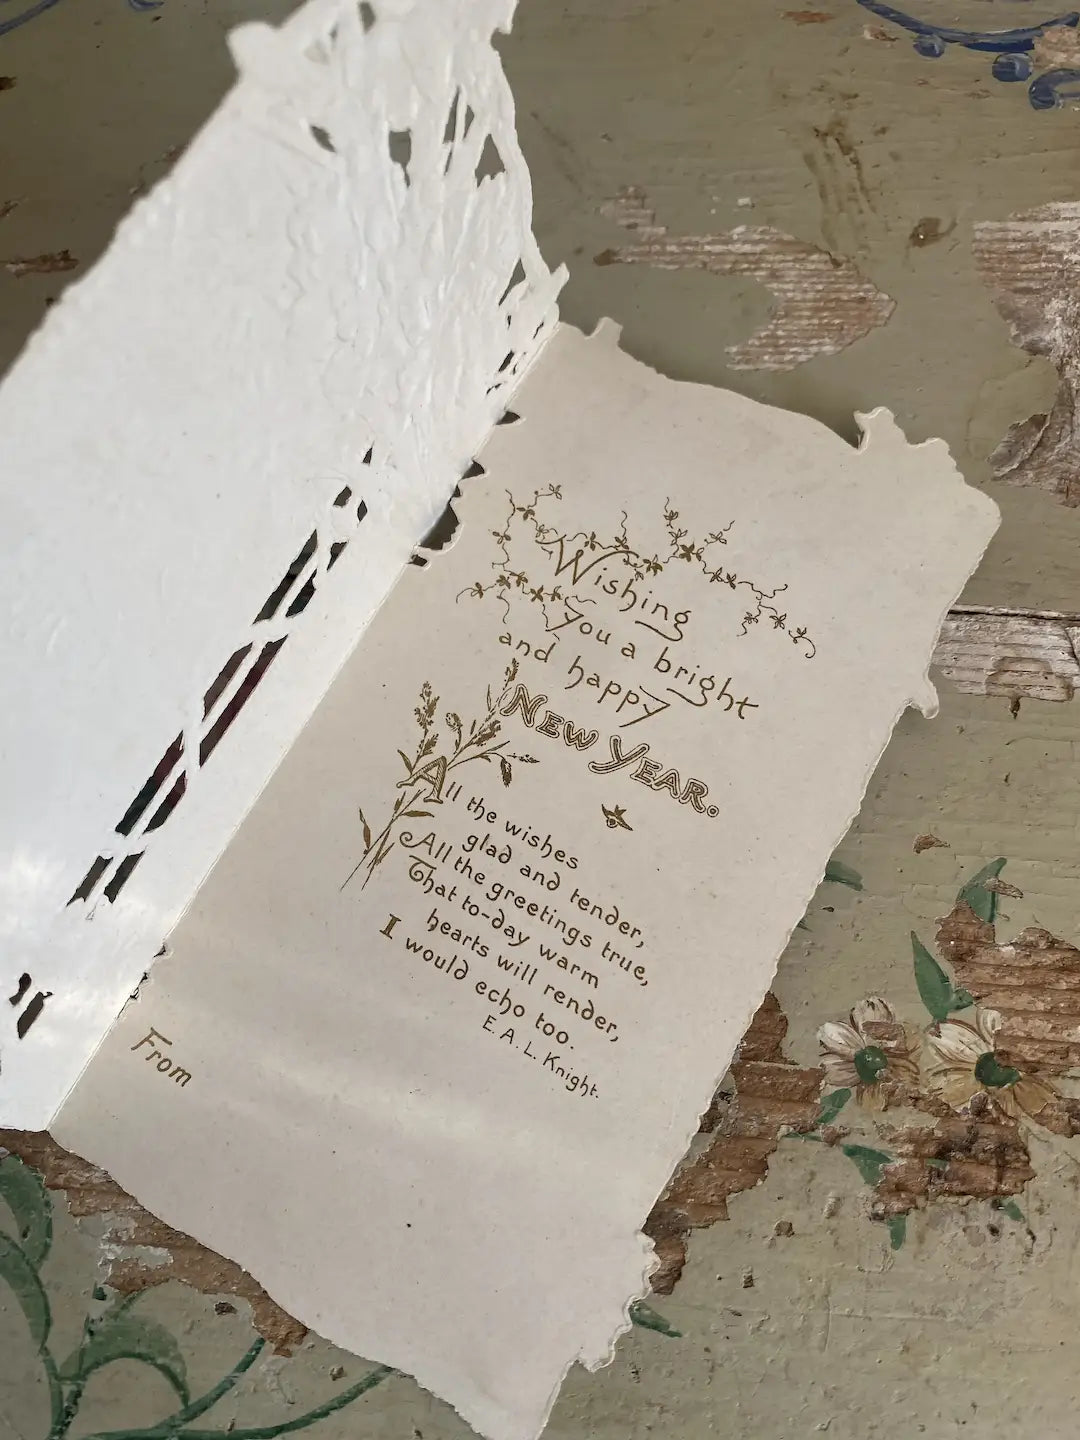 Wishing
you a bright
and happy
NEW YEAR.
All the wishes
glad and tender,
All the greetings true,
That to-day warm
hearts will render,
I would echo too.
E. A. L. Knight.
From